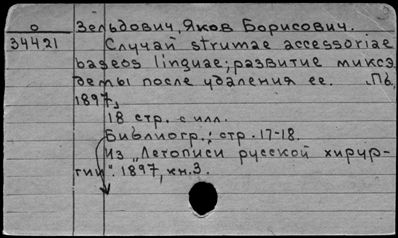 о Зельдович, Яков Борисович.
34421 Случай strumae accessoriae
baseos linguae; развитие миксэ
демы после удаления ее. .Пб,
1897,
18 стр. с илл.
Библиогр.: стр. 17-18.
Из „Летописи русской хирур-
гии". 1897, кн. 3.